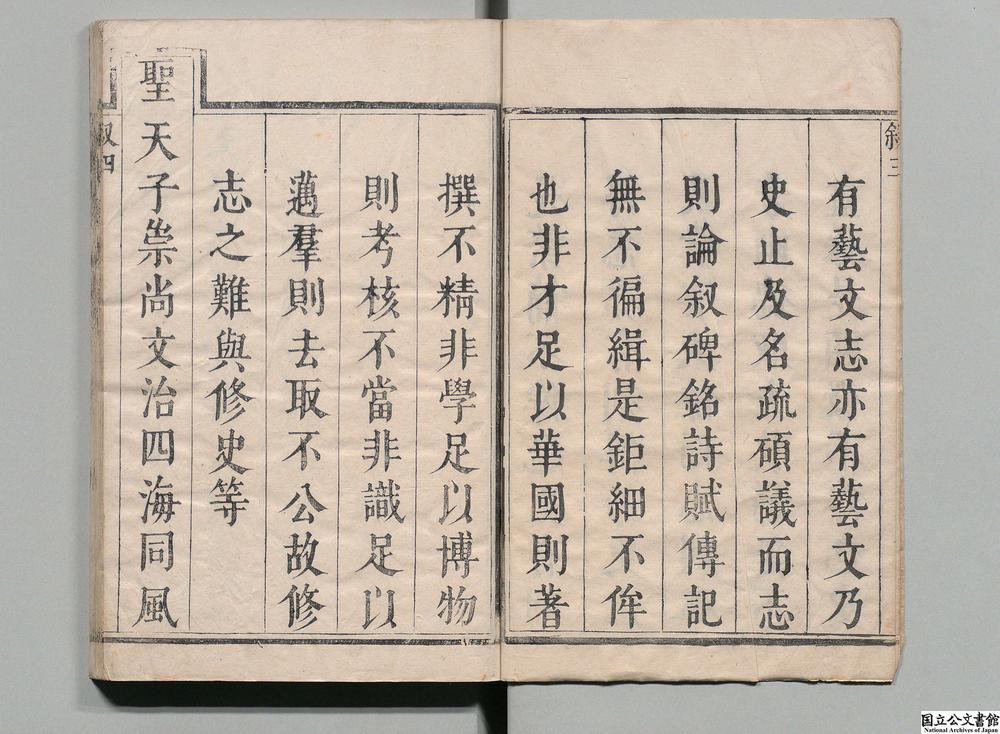 叙三
有藝文志亦有藝文乃
史止及名疏碩議而志
則論叙碑銘詩賦傳記
無不徧緝是鉅細不侔
也非才足以華國則著
撰不精非學足以博物
則考核不當非識足以
邁羣則去取不公故修
志之難與修史等
聖天子崇尚文治四海同風
叙四
国立公文書館
National Archives of Japan